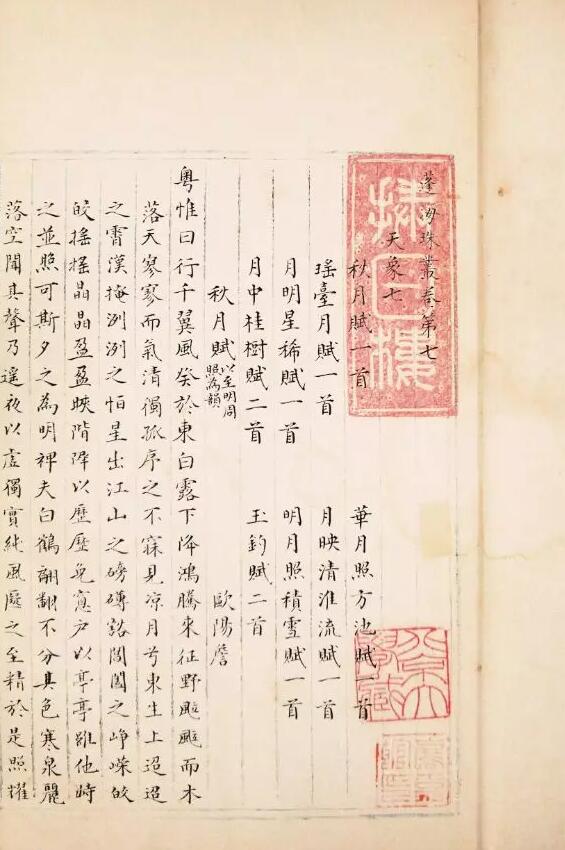 抹云樓
蓬海珠叢卷第七
天象七
秋月賦一首 華月照方池賦一首
瑤臺月賦一首 月映清淮流賦一首
月明星稀賦一首 明月照積雪賦一首
月中桂樹賦二首 玉鈎賦二首
秋月賦 以至明周照為韻 歐陽詹
粵惟曰行千翼風癸於東白露下降鴻騰來征野颷颷而木
落天寥寥而氣清獨孤序之不寐見凉月兮東生上迢迢
之霄漢掩洌洌之怕星出江山之磅礴豁閶闔之崢嶸皎
皎搖搖晶晶盈盈映階墀以歷歷 戶以亭亭雖他時
之並照可斯夕之為明裨夫白鶴翩翻不分其色寒泉麗
落空聞其聲乃遥夜以虛獨實純風 之至精於是照耀